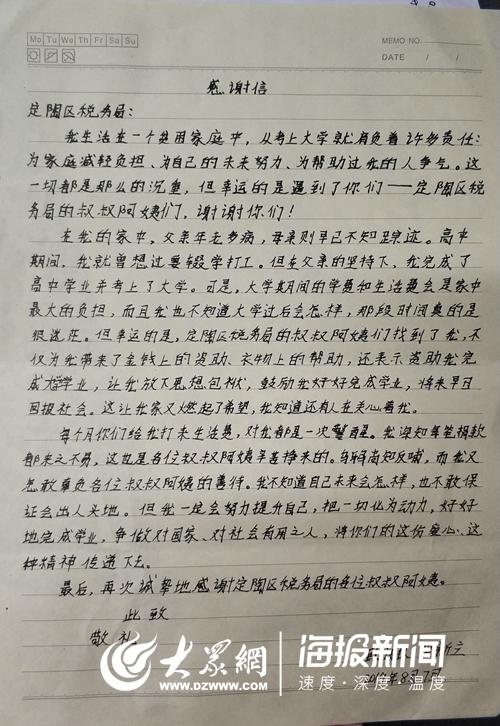 Mo Tu We Th Fr Sa Su
MEMO NO.
DATE / /
感谢信
定陶区税务局：
我生活在一个贫困家庭中，从考上大学就肩负着许多责任：
为家庭减轻负担、为自己的未来努力、为帮助过我的人争气。这
一切都是那么的沉重，但幸运的是遇到了你们——定陶区税
务局的叔叔阿姨们，谢谢你们！
在我的家中，父亲年老多病，母亲则早已不知踪迹。高中
期间，我就曾想过要辍学打工。但在父亲的坚持下，我完成了
高中学业并考上了大学。可是，大学期间的学费和生活费会是家中
最大的负担，而且我也不知道大学过后会怎样，那段时间真的是
很迷茫。但幸运的是，定陶区税务局的叔叔阿姨们找到了我，不
仅为我带来了金钱上的资助、衣物上的帮助，还表示资助我完
成大学学业，让我放下思想包袱，鼓励我好好完成学业，将来早日
回报社会。这让我家又燃起了希望，我知道还有人在关心着我。
每个月你们给我打来生活费，对我都是一次警醒。我深知每笔捐款
都来之不易，这也是各位叔叔阿姨辛苦挣来的。乌鸦尚知反哺，而我又
怎敢辜负各位叔叔阿姨的善待。我不知道自己未来会怎样，也不敢保
证会出人头地。但我一定会努力提升自己，把一切化为动力，好好
地完成学业，争做对国家、对社会有用之人，将你们的这份爱心、这
种精神传递下去。
最后，再次诚挚地感谢定陶区税务局的各位叔叔阿姨。
此致
敬礼
大众网 海报新闻
WWW.DZWWW.COM 速度·深度·温度